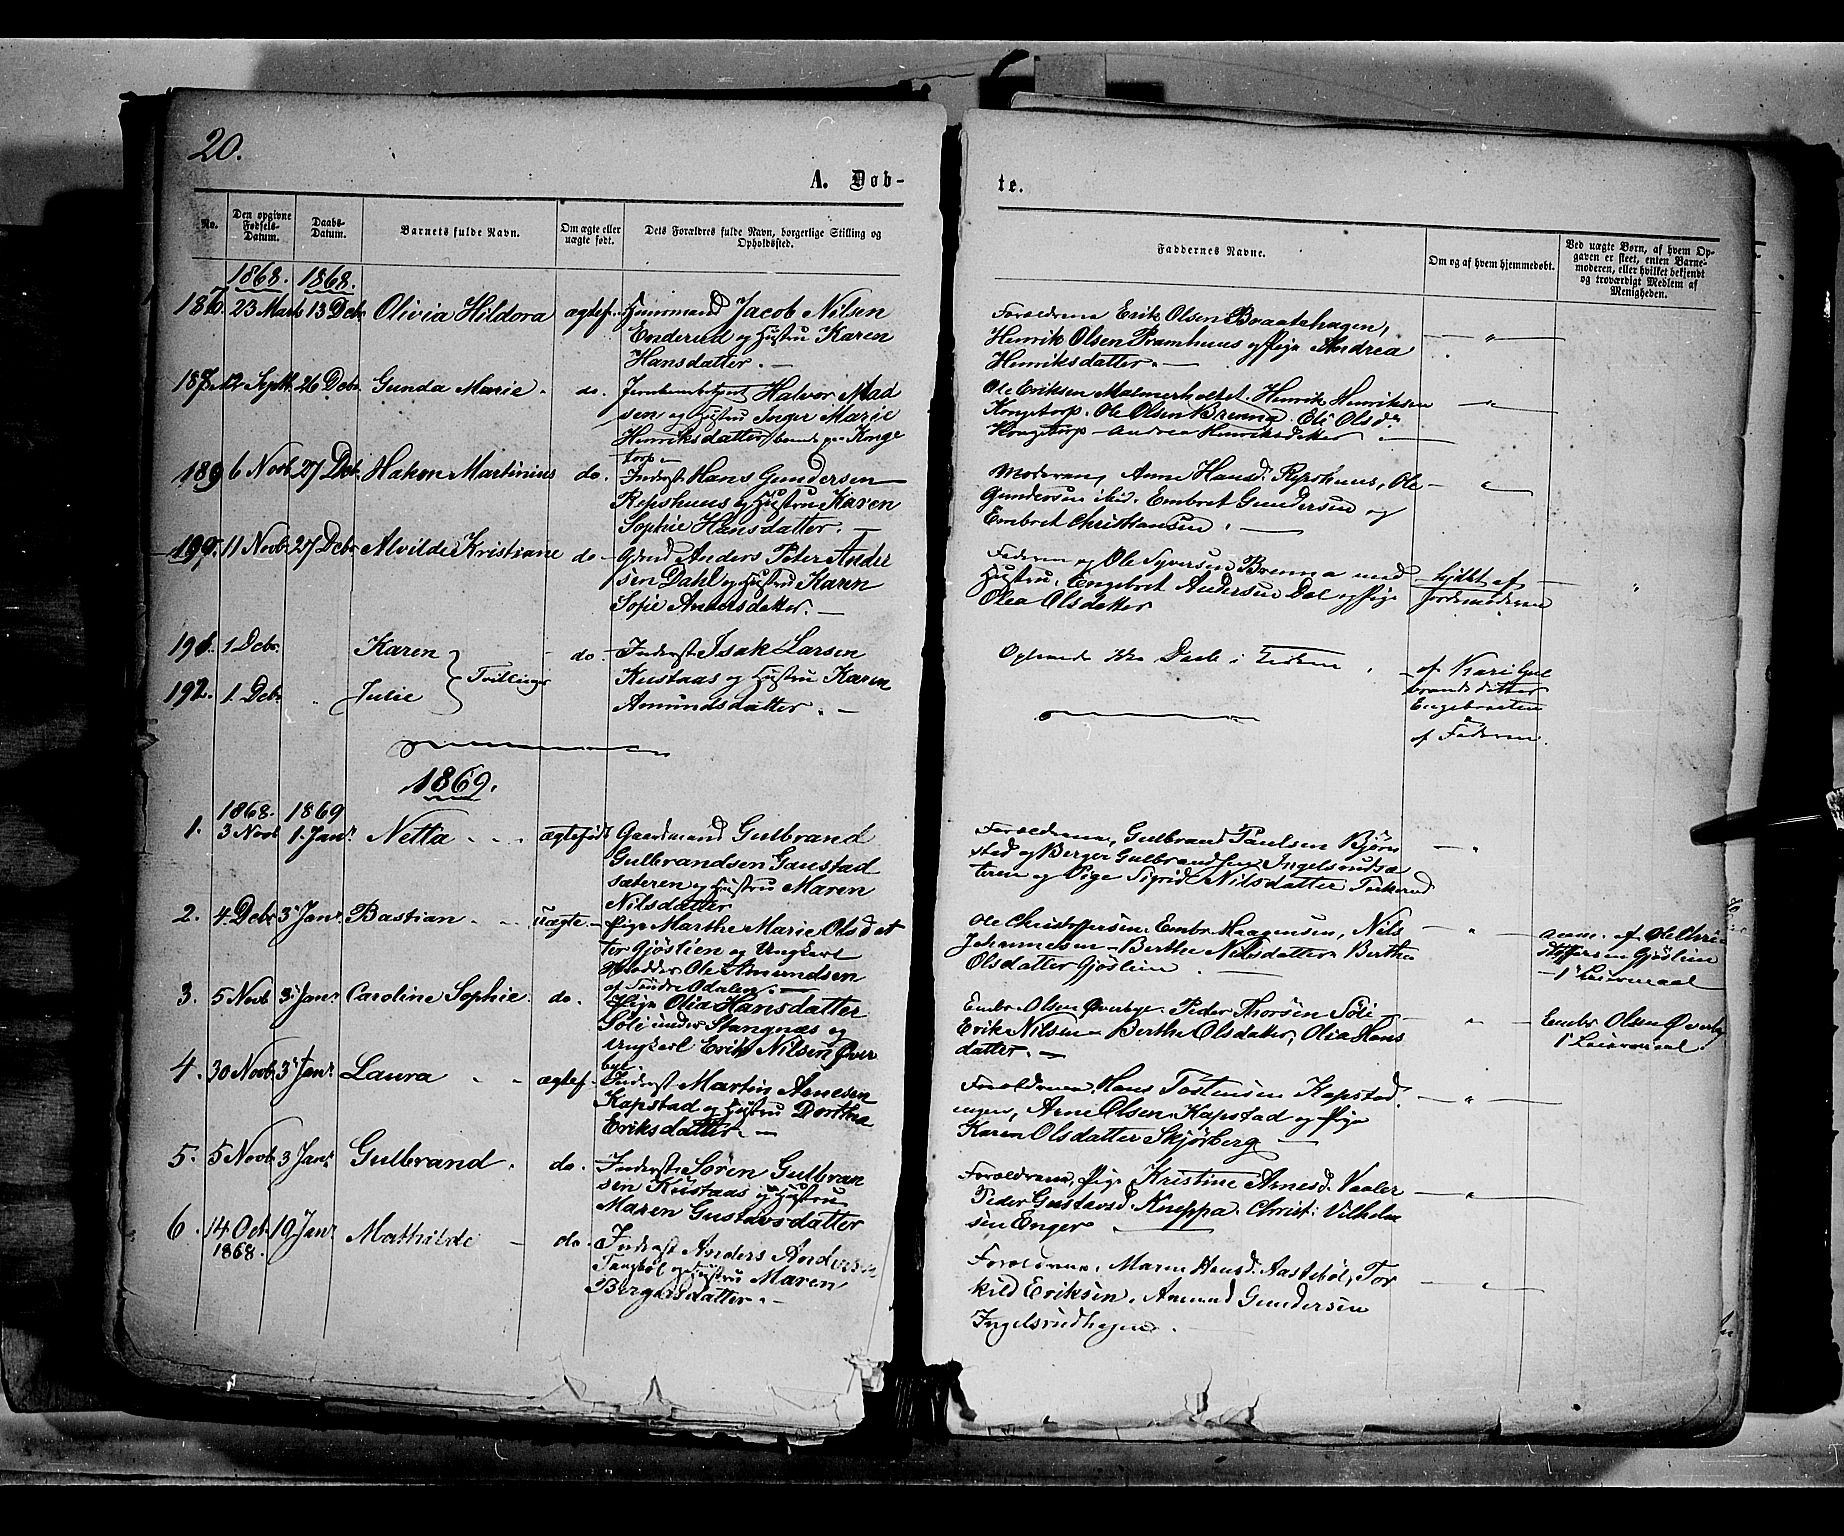 20.
A. Døb-
te.
No.
Den opgivne Fødsels-Datum.
Daabs-Datum.
Barnets fulde Navn.
Om ægte eller uægte født.
Dets Forældres fulde Navn, borgerlige Stilling og Opholdssted.
Faddernes Navne.
Om og af hvem hjemmedøbt.
Ved uægte Børn, af hvem Op-
gaven er skeet, enten Barne-
moderen, eller hvilket bekjendt
og troværdigt Medlem af
Menigheden.
1868. 1868.
23 Marts 13 Debr Olivia Hildora ægtef. Huusmand Jacob Nilsen
Enderud og Hustru Karen
Hansdatter. —
Forældrene Erik Olsen Braatehagen,
Henrik Olsen Framhuus og Pige Andrea
Henriksdatter. —
12 Septb. 26 Debr. Gunda Marie do. Halvor Mad
sen og Hustru Inger Marie
Henriksdatter Konge
torp —
Ole Eriksen Malmerholtet. Henrik Henriksen
Kongetorp. Ole Olsen Brenna. Oli Olsdr
Kongetorp — Andrea Henriksdatter
6 Novb. 27 Debr. Hakon Martinius do. Inderst Hans Gundersen
Repshuus og Hustru Karen
Sophie Hansdatter. —
Moderen, Anne Hansd. Repshuus, Ole
Gundersen ibid. Embret Gundersen og
Embret Christiansen. —
190. 11 Novb. 27 Debr Alvilde Kristiane do. Anders Peter Ander
sen Dahl og Hustru Karen
Sofie Andersdatter. —
Faderen og Ole Syversen Brenna med
Hustru, Engebret Andersen Dal og Pige
Olea Olsdatter
af
Jordemoderen
191. 1 Debr. Karen
192. 1 Debr. Julie
Tvillinger
do. Inderst Isak Larsen
Kustaas og Hustru Karen
Amundsdatter. —
ikke Daab i Kirken
af Kari Gul
brandsdatter
Engebraaten
af Faderen.
1869.
1868. 1869
1. 3 Novb. 1. Janr. Netta ægtefødt Gaardmand Gulbrand
Gulbrandsen Gaustad
sæteren og Hustru Maren
Nilsdatter
Forældrene, Gulbrand Paulsen Bjørn
sted og Berger Gulbrandsen Ingelsrudsæ
teren og Pige Sigrid Nilsdatter
2. 4. Debr 3 Janr. Bastian uægte — Pige Marthe Marie Olsdat
ter Gjöslien og Ungkarl
Ole Amundsen
af Söndre Odalen. —
Ole Christoffersen. Embr. Haagensen, Nils
Johannesen — Berthe Nilsdatter — Berthe
Olsdatter Gjöslien
anm. af Ole Chri
stoffersen Gjöslien
— 1ste Leiermaal
3. 5 Novb 3 Janr. Caroline Sophie do. Pige Olia Hansdatter
Söli under Stangnæs og
Ungkarl Erik Nilsen Över
bye.
Embr. Olsen Överbye. Peder Thorsen Söli —
Erik Nilsen — Berthe Olsdatter, Olia Hans
datter. —
Embr Olsen Överby
1ste Leiermaal.
4. 30 Novb 3 Janr. Laura ægtef. Inderst Martin Arnesen
Kapstad og Hustru Dorthea
Eriksdatter. —
Forældrene, Hans Tostensen Kapstad
engen, Arne Olsen Kapstad og Pige
Karen Olsdatter Skjörberg —
5. 5 Novb. 3 Janr. Gulbrand. do. Inderst Sören Gulbran
sen Kustaas og Hustru
Maren Gustavsdatter
Forældrene, Pige Kristine Arnesd. Vaaler
Peder Gustavsd Knappa. Christ. Vilhelm
sen Enger —
6. 14 Octr. 19 Janr. Mathilde — do. Inderst Anders Anderse
1868.
Tangböl og Hustru Maren
Bergersdatter. —
Forældrene. Maren Hansd. Aasteböl, Tor
kild Eriksen. Amund Gundersen
Ingelsrudhagen.